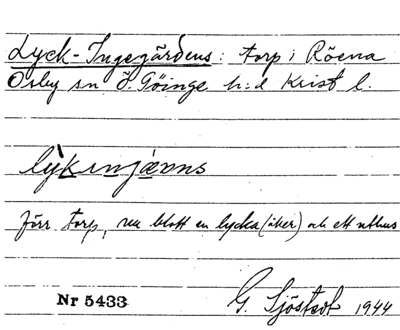 Lyck-Ingegärdens: torp i Röena
Osby sn Ö. Göinge h:d Krist l.
lỳkɩnjæɹns
förr torp, nu blott en lycka (åker) och ett uthus
Nr 5433 G. Sjöstedt 1944